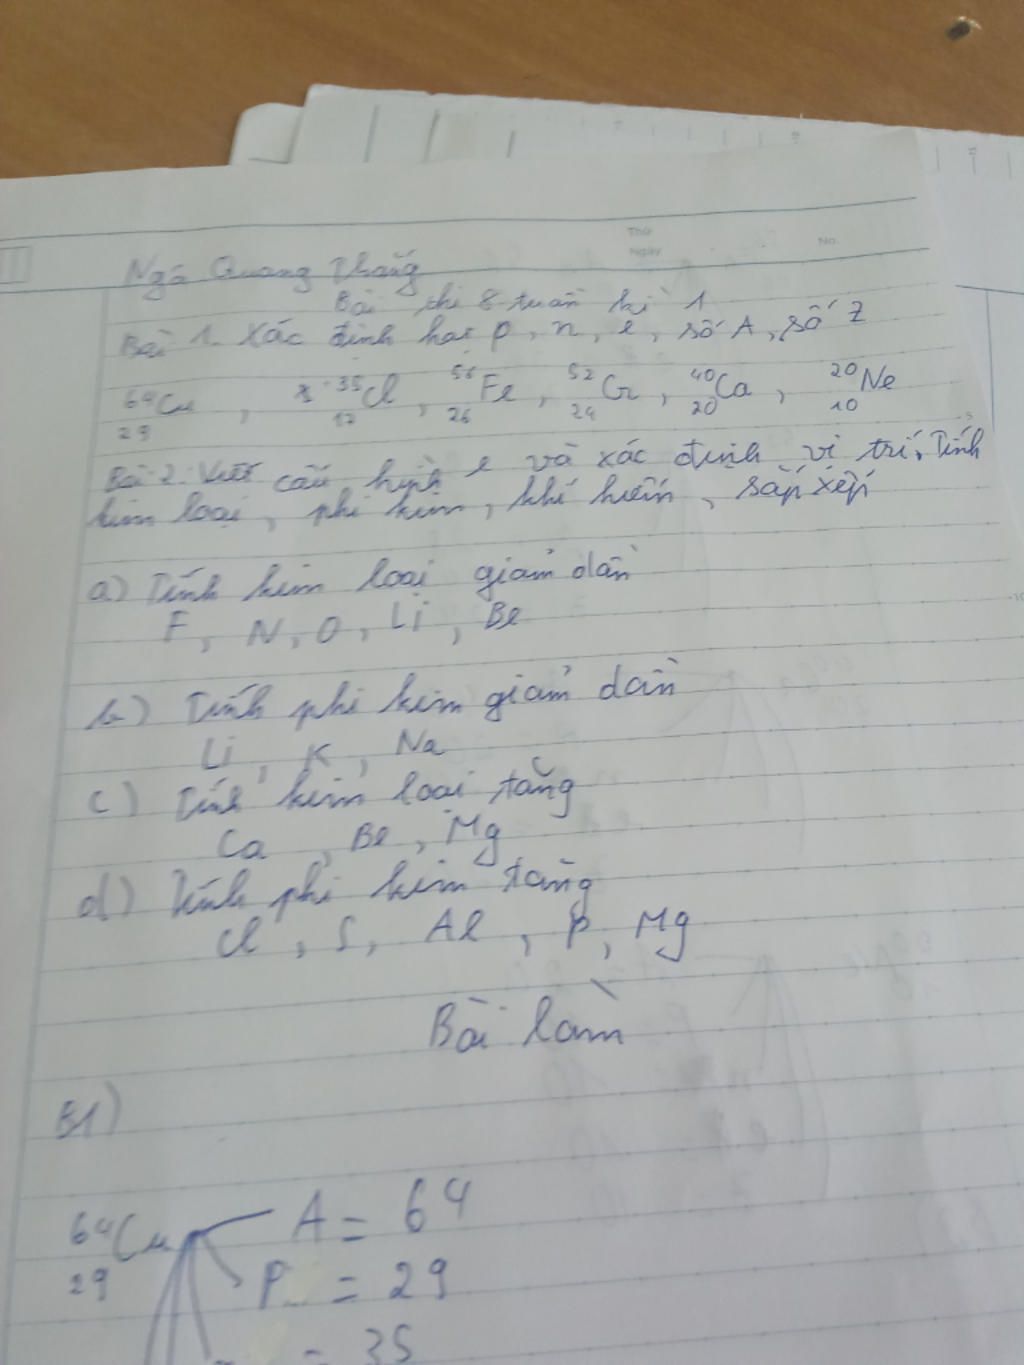 Thứ
Ngày
No.
Ngô Quang Thắng
Bài thi 8 tuần kì 1
Bài 1. Xác định hạt p, n, e, số A, số Z
64 29 Cu, 35 17 Cl, 56 26 Fe, 52 24 Cr, 40 20 Ca, 20 10 Ne
Bài 2. Viết cấu hình e và xác định vị trí, Tính
kim loại, phi kim, khí hiếm, sắp xếp
a) Tính kim loại giảm dần
F, N, O, Li, Be
b) Tính phi kim giảm dần
Li, K, Na
c) Tính kim loại tăng
Ca, Be, Mg
d) Tính phi kim tăng
Cl, S, Al, P, Mg
Bài làm
B1)
64 29 Cu A = 64
P = 29
= 35